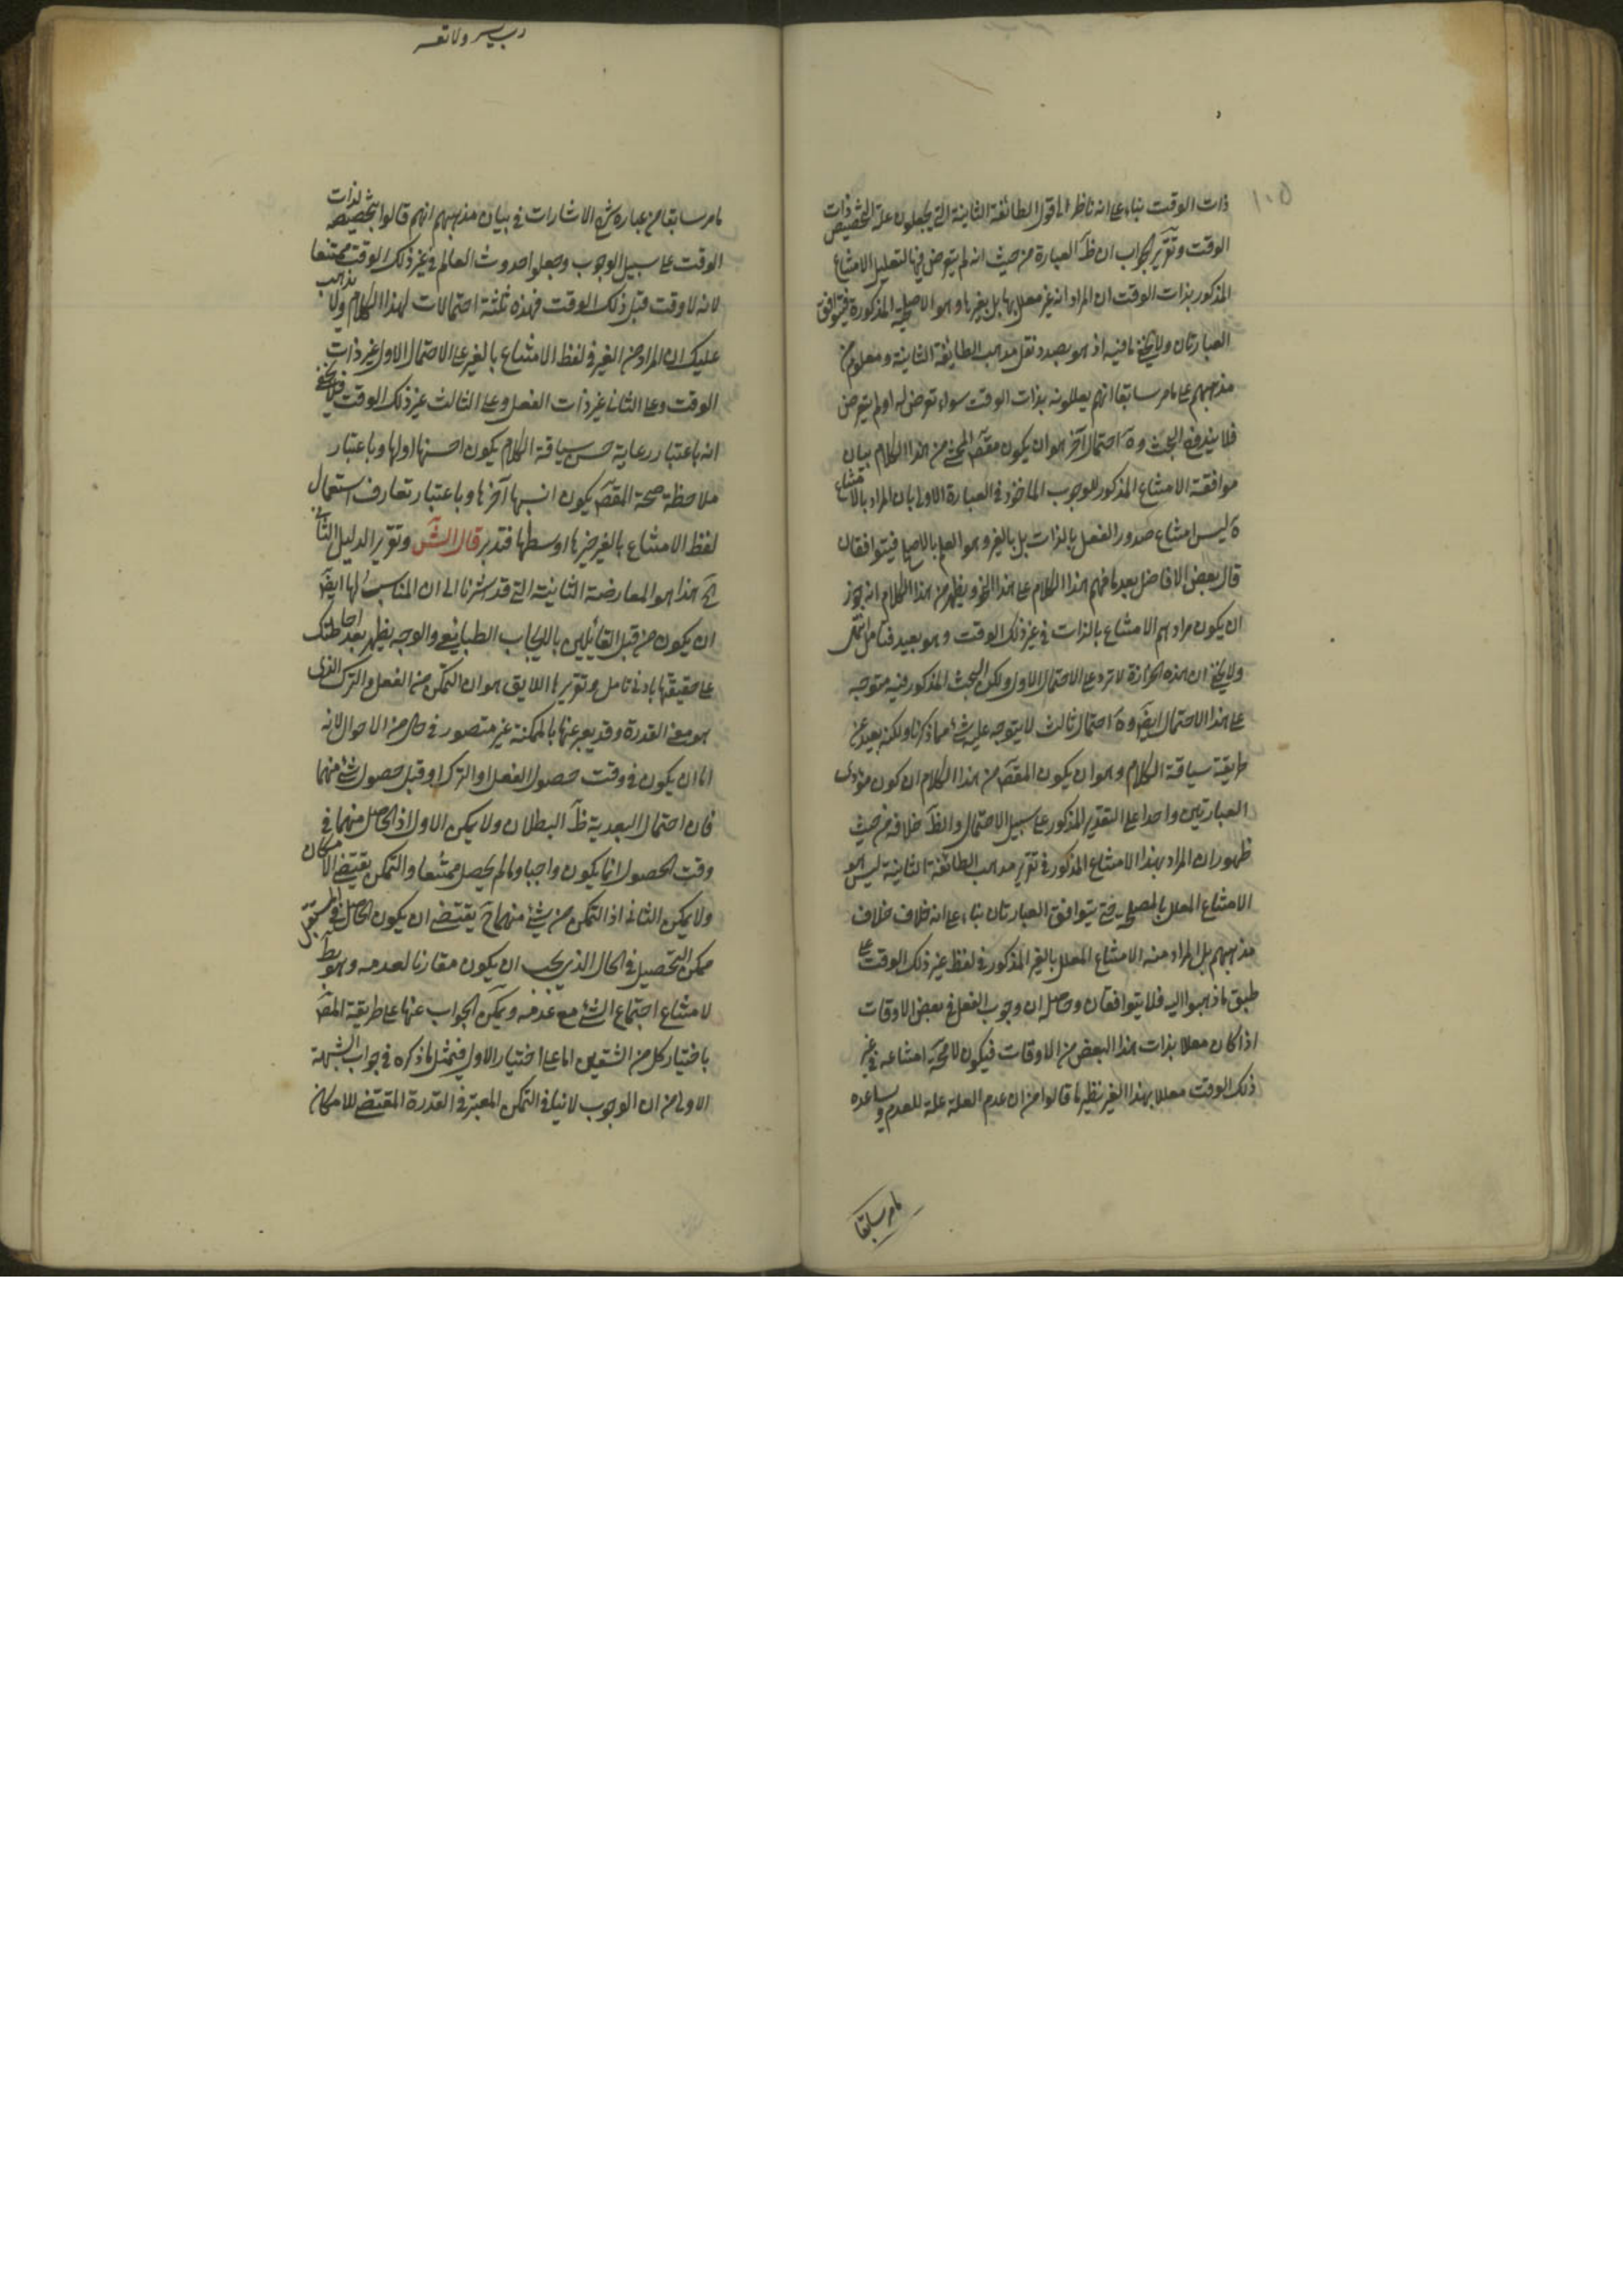 ١٠٥
ذات الوقت بناء على انه ناظر الى قول الطائفة الثانية التي يجعلون علة التخصيص ذات
الوقت وتقرير الجواب ان ظ العبارة من حيث انه لم يتعرض فيها لتعليل الامتناع
المذكور بذات الوقت ان المراد انه غير معلل بها بل بغيرها وهو الاصلحية المذكورة فيتوافق
العبارتان ولا يخفى ما فيه اذ هو بصدد نقل مذهب الطائفة الثانية ومعلوم من
مذهبهم على ما مر سابقا انهم يعللونه بذات الوقت سواء تعرض له او لم يتعرض
فلا يندفع البحث وه احتمال آخر هو ان يكون مقص المحشي من هذا الكلام بيان
موافقة الامتناع المذكور للوجوب الماخوذ في العبارة الاولى بان المراد بالامتناع
ه ليس امتناع صدور الفعل بالذات بل بالغير وهو العلم بالاصلح فيتوافقان
قال بعض الافاضل بعد ما فهم هذا الكلام على هذا النحو ويظهر من هذا الكلام انه يجوز
ان يكون مرادهم الامتناع بالذات في غير ذلك الوقت وهو بعيد فتامل انتهى
ولا يخفى ان هذه الحزازة لا ترد على الاحتمال الاول ولكن البحث المذكور فيه متوجه
على هذا الاحتمال ايض وه احتمال ثالث لا يتوجه عليه شئ مما ذكرنا ولكنه بعيد عن
طريقة سياقة الكلام وهو ان يكون المقص من هذا الكلام ان كون مؤدى
العبارتين واحدا على التقدير المذكور على سبيل الاحتمال والظ خلافه من حيث
ظهور ان المراد بهذا الامتناع المذكور في تقرير مذهب الطائفة الثانية ليس هو
الامتناع المعلل بالمصلحة حتى يتوافق العبارتان بناء على انه خلاف خلاف
مذهبهم بل المراد منه الامتناع المعلل بالغير المذكور في لفظ غير ذلك الوقت على
طبق ما ذهبوا اليه فلا يتوافقان وحاصله ان وجوب الفعل في بعض الاوقات
اذا كان معللا بذات هذا البعض من الاوقات فيكون لا محة امتناعه في غير
ذلك الوقت معللا بهذا الغير نظير ما قالوا من ان عدم العلة علة للعدم ويساعده
ما مر سابقا
رب يسر ولا تعسر
ما مر سابقا من عبارة شرح الاشارات في بيان مذهبهم انهم قالوا بتخصيصه لذات
الوقت على سبيل الوجوب وجعلوا حدوث العالم في غير ذلك الوقت ممتنعا
لانه لا وقت قبل ذلك الوقت فهذه ثلثة احتمالات لهذا الكلام ولا يذهب
عليك ان المراد من الغير في لفظ الامتناع بالغير على الاحتمال الاول غير ذات
الوقت وعلى الثاني غير ذات الفعل وعلى الثالث غير ذلك الوقت ولا يخفى
انه باعتبار رعاية حسن سياقة الكلام يكون احسنها اولها وباعتبار
ملاحظة صحة المقص يكون انسبها آخرها وباعتبار تعارف استعمال
لفظ الامتناع بالغير خيرها اوسطها فتدبر قال الش وتقرير الدليل الثاني
الخ هذا هو المعارضة الثانية التي قد اشرنا الى ان المناسب لها ايض
ان يكون من قبل القائلين بالايجاب الطبايعي والوجه يظهر بعد احاطتك
على حقيقتها بادنى تامل وتقريرها اللايق هو ان التمكن من الفعل والترك الذي
هو معنى القدرة وقد يعبر عنها بالمكنة غير متصور في حال من الاحوال لانه
اما ان يكون في وقت حصول الفعل او الترك او قبل حصول شئ منهما
فان احتمال البعدية ظ البطلان ولا يمكن الاول اذ الحاصل منهما في
وقت الحصول انما يكون واجبا وما لم يحصل ممتنعا والتمكن يقتضي الامكان
ولا يمكن الثاني اذ التمكن من شئ منهما ح يقتضي ان يكون الحاصل في المستقبل
ممكن التحصيل في الحال الذي يجب ان يكون مقارنا لعدمه وهو بط
لامتناع اجتماع الشئ مع عدمه ويمكن الجواب عنها على طريقة المص
باختيار كل من الشقين اما على اختيار الاول فبمثل ما ذكره في جواب الشبهة
الاولى من ان الوجوب لا ينافي التمكن المعتبر في القدرة المقتضي للامكان